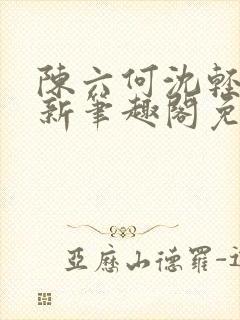 陳六何沈輕
新筆趣閣免
亞歷山德羅-